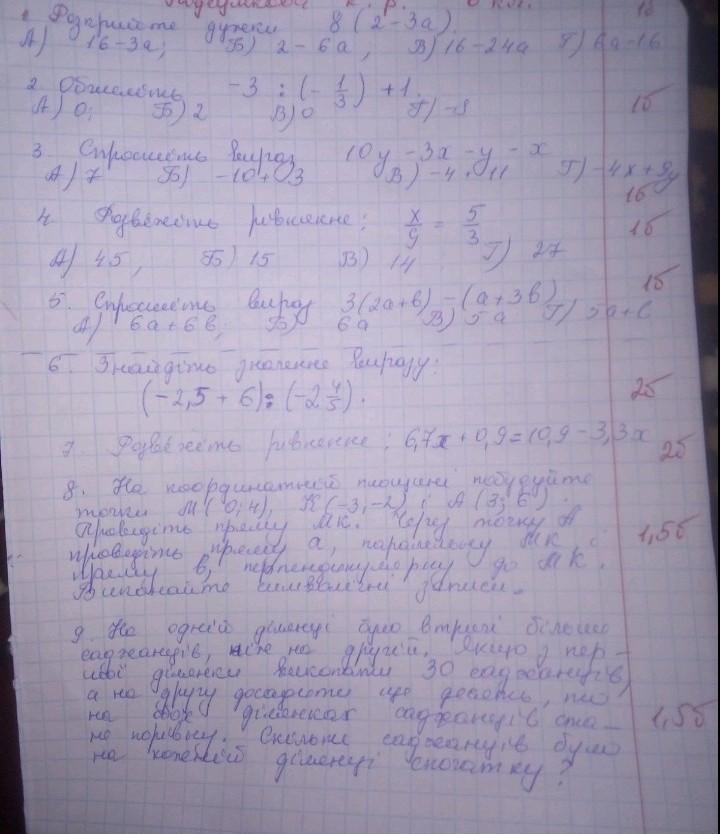 к. р. 6 кл.
1. Розкрийте дужки 8(2-3а). 1б
А) 16-3а; Б) 2-6а, В) 16-24а Г) 6а-16
2. Обчисліть -3 : (-1/3) + 1. 1б
А) 0; Б) 2 В) 0 Г) -8
3. Спростіть вираз 10у - 3х - у - х
А) 7 Б) -10 + 3 В) -4 + 11 Г) -4х + 9у
1б
4. Розв'яжіть рівняння: х/9 = 5/3 1б
А) 45, Б) 15 В) 14 Г) 27
5. Спростіть вираз 3(2а+в) - (а+3в) 1б
А) 6а+6в; Б) 6а В) 5а Г) 5а+в
6. Знайдіть значення виразу:
(-2,5 + 6) : (-2 4/5). 2б
7. Розв'яжіть рівняння: 6,7х + 0,9 = 10,9 - 3,3х 2б
8. На координатній площині побудуйте
точки М(0; 4), К(-3; -2) і А(3; 6).
Проведіть пряму МК. Через точку А 1,5б
проведіть пряму а, паралельну МК і
пряму в, перпендикулярну до МК.
Виконайте символічні записи.
9. На одній ділянці було втричі більше
саджанців, ніж на другій. Якщо з пер-
шої ділянки викопати 30 саджанців,
а на другу досадити ще девять, то
на обох ділянках саджанців ста- 1,5б
не порівну. Скільки саджанців було
на кожній ділянці спочатку?